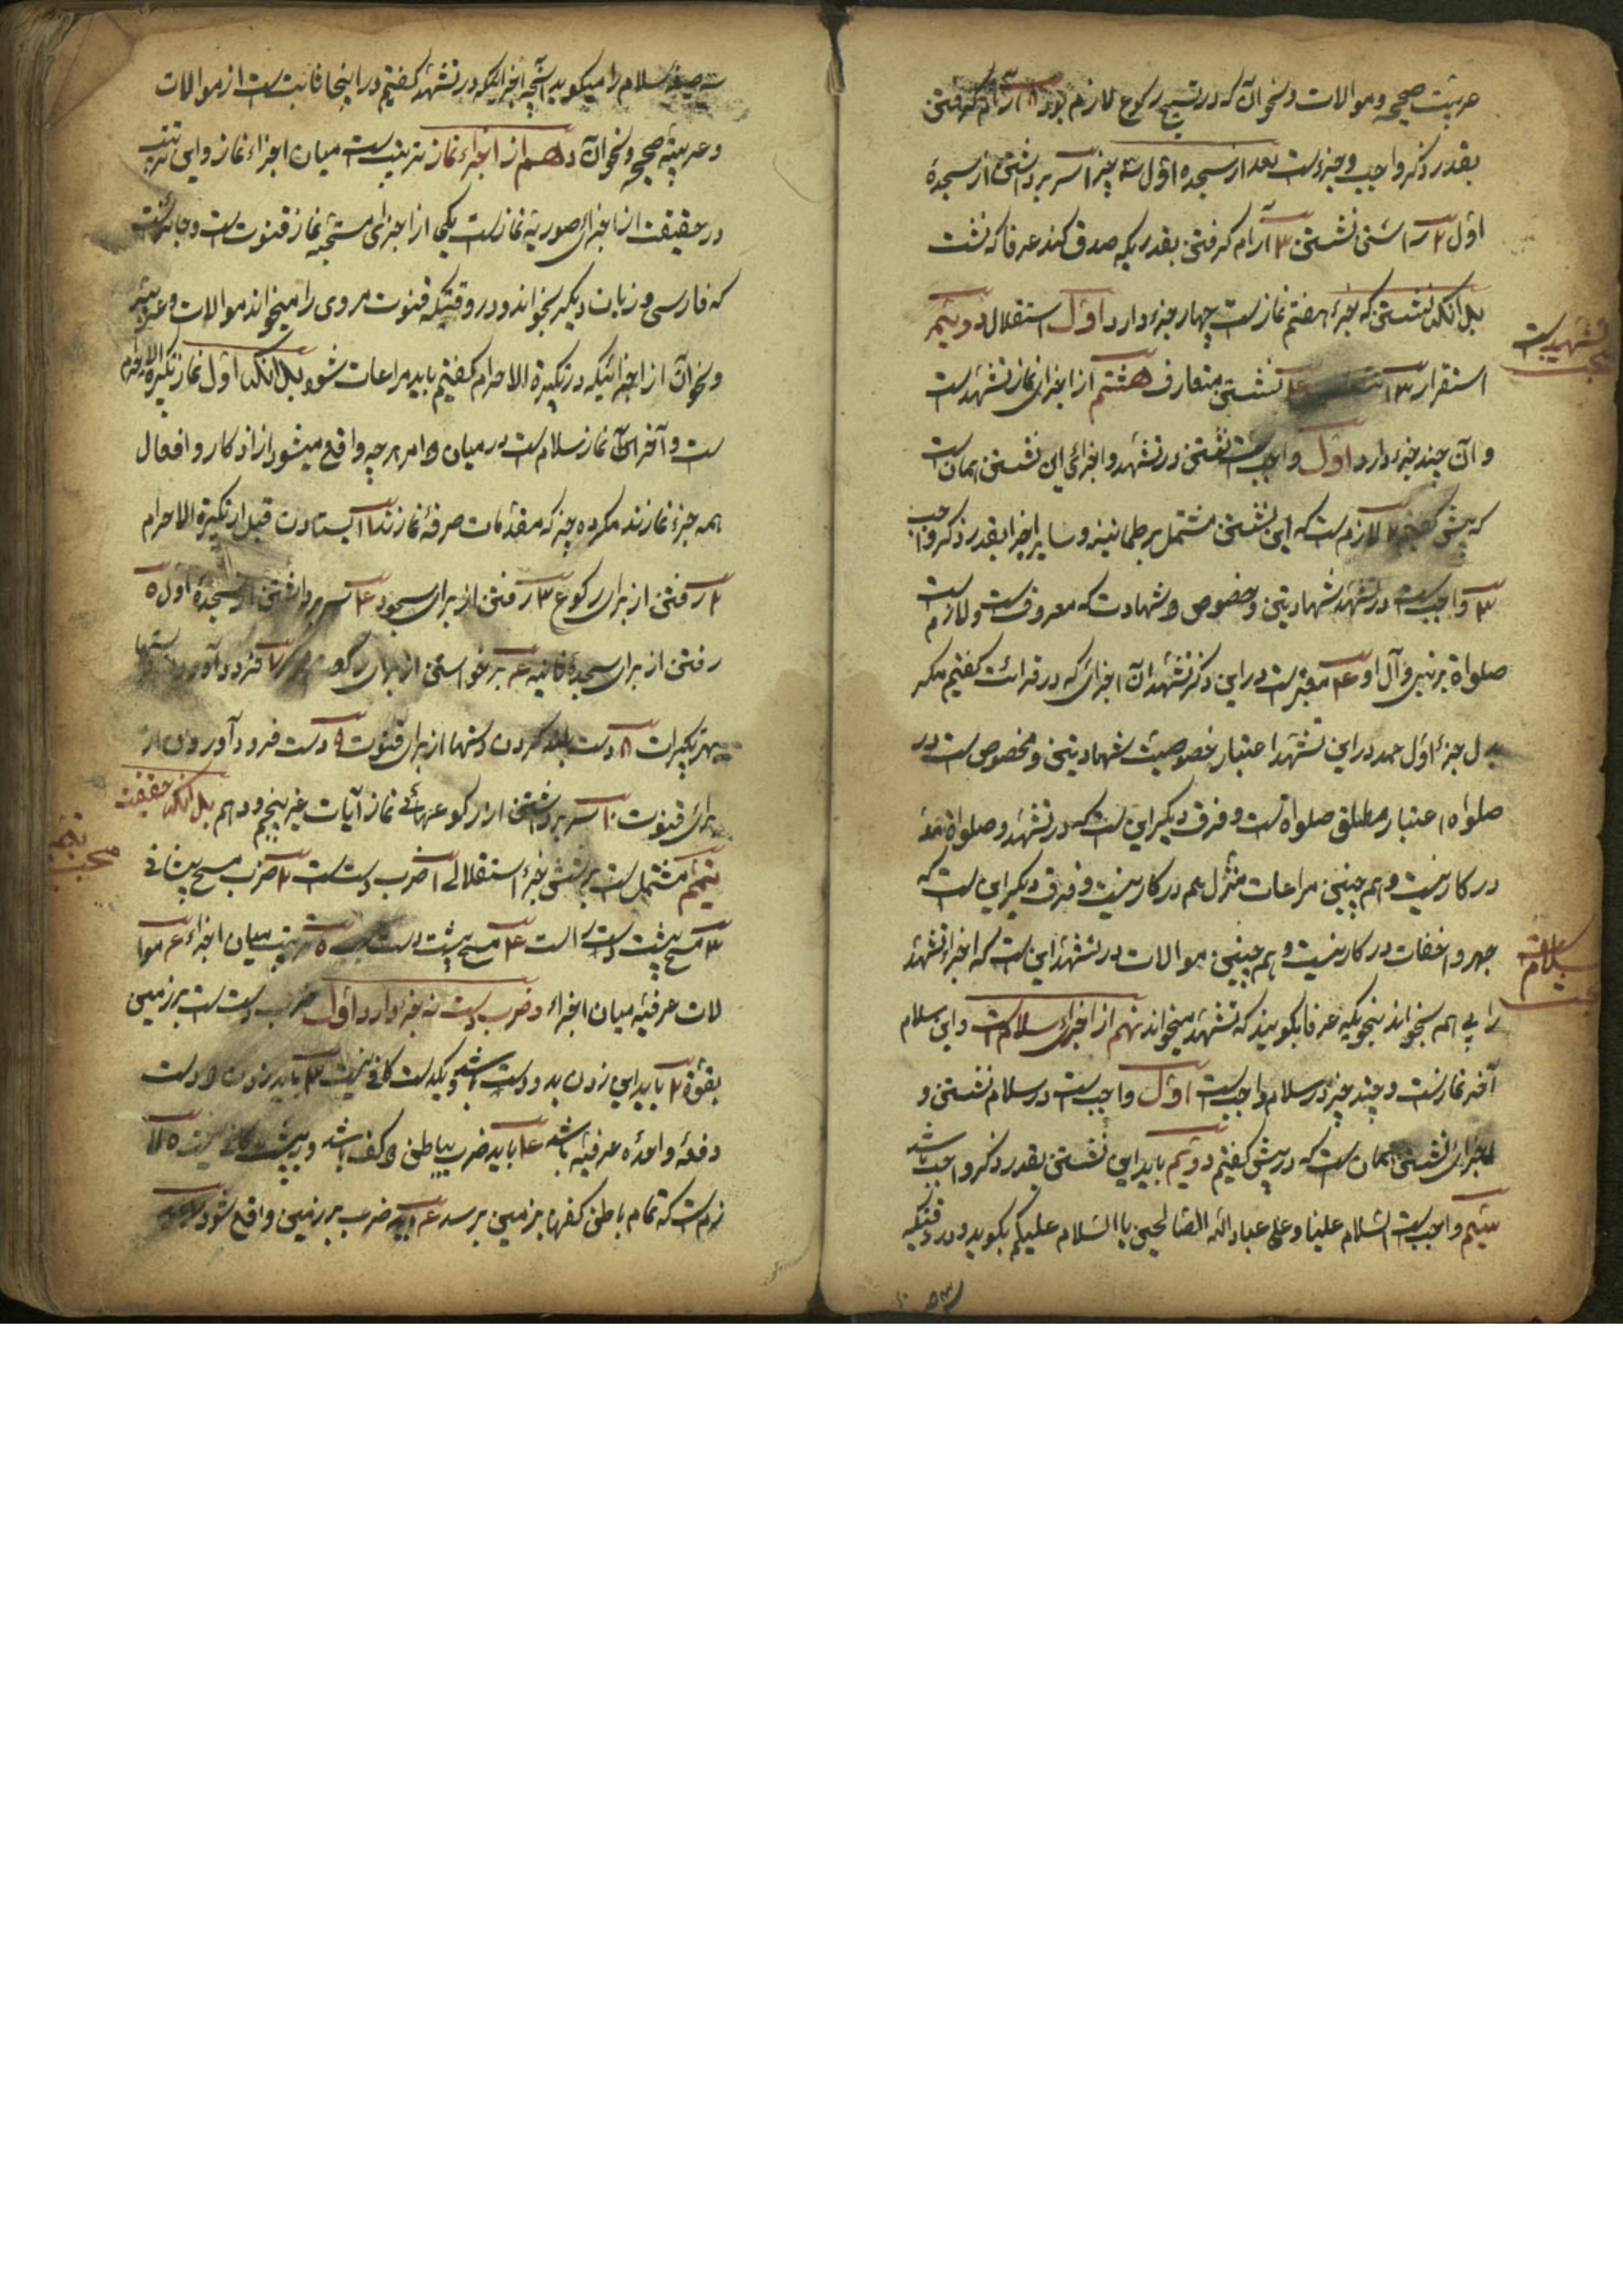 عربیت صحیحه و موالات و نحو آن که در تسبیح رکوع لازم بود ۸ آرام گرفتن
بقدر ذکر واجب و جزءست بعد از سجده اول سه چیز ۱ سر برداشتن از سجدهٔ
اول ۲ راستی نشستن ۳ آرام گرفتن بقدریکه صدق کند عرفا که نشست
بدانکه نشستن که جزء هفتم نمازست چهار جزء دارد اول استقلال دویم
استقرار ۳ ۴ نشستن متعارف هشتم از اجزای نماز تشهدست
تشهدست
و آن چند جزء دارد اول واجبست نشستن در تشهد و اجزای این نشستن همانست
که پیش گفتیم ۲ لازم ست که این نشستن مشتمل بر طمانینه و سایر اجزا بقدر ذکر واجب
۳ واجبست در تشهد شهادتین و خصوص شهادت که معروفست و لازم ست
صلواة بر نبی و آل او ۴ معتبرست در این ذکر تشهد آن اجزای که در قرائت گفتیم مگر
بدل جزء اول حمد در این تشهد اعتبار خصوصیت شهادتین و مخصوص ست در
صلواه اعتبار مطلق صلواة ست و فرق دیگر این ست که در تشهد و صلواة مد
در کار نیست و هم چنین مراعات منزل هم در کار نیست و فرق دیگر این ست که
جهر و اخفات در کار نیست و هم چنین موالات در تشهد این ست که اجزاء تشهد
سلام
را پی هم بخواند بنحویکه عرفا بگویند که تشهد میخواند نهم از اجزاء سلام ست و این سلام
آخر نمازست و چند چیز در سلام واجبست اول واجبست در سلام نشستن و
اجزای نشستن همان ست که در پیش گفتیم دویم باید این نشستن بقدر ذکر واجب باشد
سیم واجبست السلام علینا و علی عباد الله الصالحین یا السلام علیکم بگوید و در وقتیکه
صیغه سلام را میگوید آنچه اجزائیکه در تشهد گفتیم در اینجا ثابت ست از موالات
و عربیة صحیحه و نحو آن دهم از اجزاء نماز ترتیب ست میان اجزاء نماز و این ترتیب
در حقیقت از اجزای صوریة نمازست یکی از اجزای مستحبه نماز قنوت ست و جایزست
که فارسی و زبان دیگر بخواند و در وقتیکه قنوت مروی را میخواند موالات و عربیت
و نحو آن از اجزائیکه در تکبیرة الاحرام گفتیم باید مراعات شود بدانکه اول نماز تکبیرة الاحرام
ست و آخر آن نماز سلام ست در میان امر هر چه واقع میشود از اذکار و افعال
همه جزء نمازند مگر ده چیز که مقدمات صرفهٔ نمازند ۱ ایستادن قبل از تکبیرة الاحرام
۲ رفتن از برای رکوع ۳ رفتن از برای سجود ۴ سر برداشتن از سجدهٔ اول ۵
رفتن از برای سجدهٔ ثانیه ۶ برخواستن از برای رکوع ۷ فرود آوردن دستها
بهر تکبیرات ۸ دست بلند کردن دستها از برای قنوت ۹ دست فرود آوردن از
برای قنوت ۱۰ سر برداشتن از رکوعهائی نماز آیات غیر پنجم و دهم بدانکه حقیقت
تیمم
تیمم مشتمل ست بر شش جزء استقلالی ۱ ضرب دست ست ۲ مسح پیشانی
۳ مسح پشت دست راست ۴ مسح پشت دست چپ ۵ ترتیب میان اجزاء ۶ موا
لات عرفیه میان اجزاء و ضرب دست نه جزء دارد اول ضرب دست ست بر زمین
بقوة ۲ باید این زدن بدو دست باشد و یکدست کافی نیست ۳ باید زدن دست
دفعهٔ واحده عرفیه باشد ۴ باید ضرب بباطن کف باشد و بپشت کافی نیست ۵ لا
زم ست که تمام باطن کفها بزمین برسد ۶ باید ضرب بر زمین واقع شود